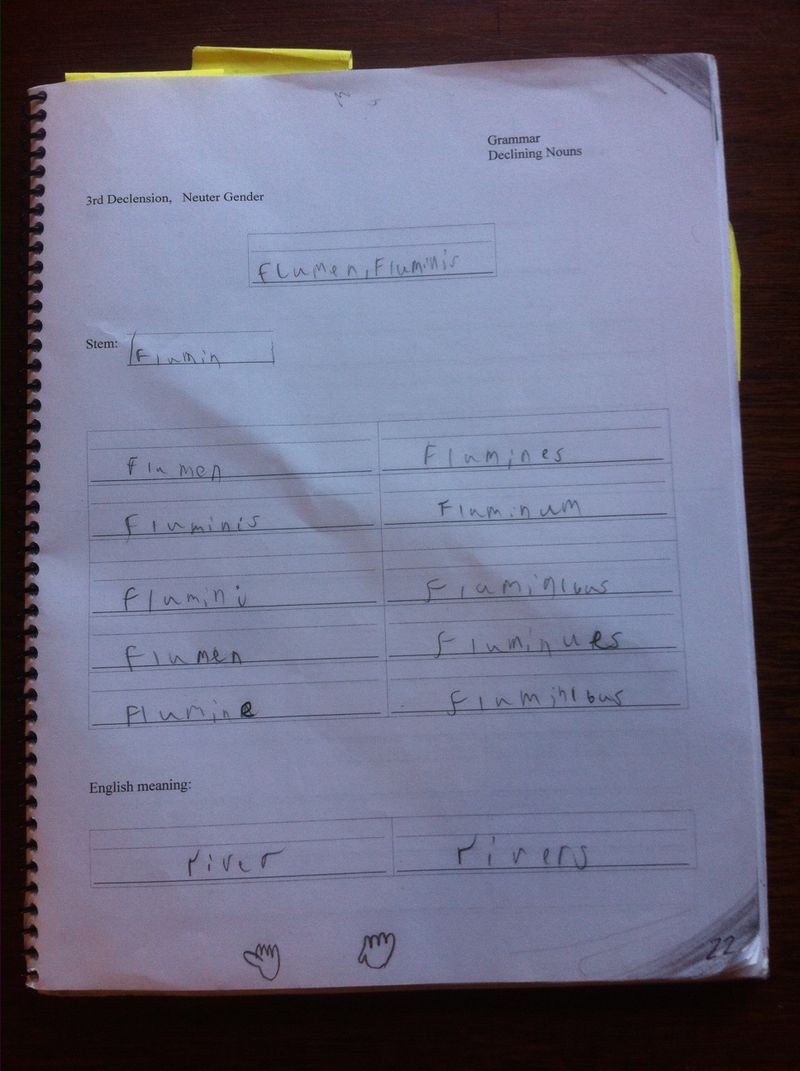 Grammar
Declining Nouns
3rd Declension, Neuter Gender
Flumen, Fluminis
Stem: Flumin
Flumen Flumines
Fluminis Fluminum
Flumini Fluminibus
Flumen Fluminues
Flumine Fluminibus
English meaning:
river rivers
22